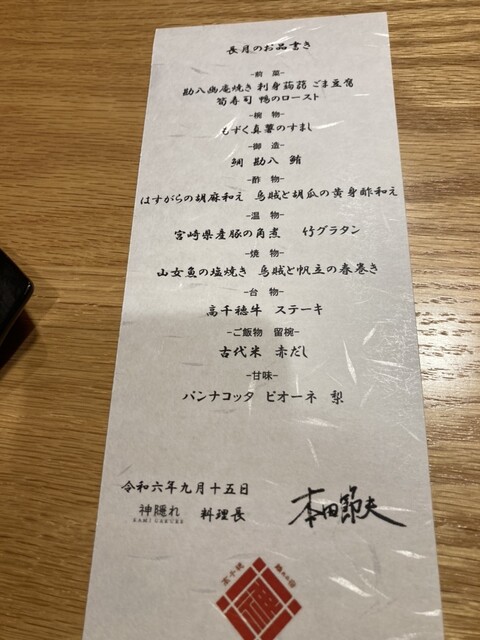 長月のお品書き
-前 菜-
勘八幽庵焼き 刺身蒟蒻 ごま豆腐
筍寿司 鴨のロースト
-椀 物-
もずく真薯のすまし
-御 造-
鯛 勘八 鮪
-酢 物-
はすがらの胡麻和え 烏賊と胡瓜の黄身酢和え
-温 物-
宮崎県産豚の角煮 竹グラタン
-焼 物-
山女魚の塩焼き 烏賊と帆立の春巻き
-台 物-
高千穂牛 ステーキ
-ご飯物 留椀-
古代米 赤だし
-甘味-
パンナコッタ ピオーネ 梨
令和六年九月十五日
神隠れ 料理長 本田節夫
KAMI GAKURE
神